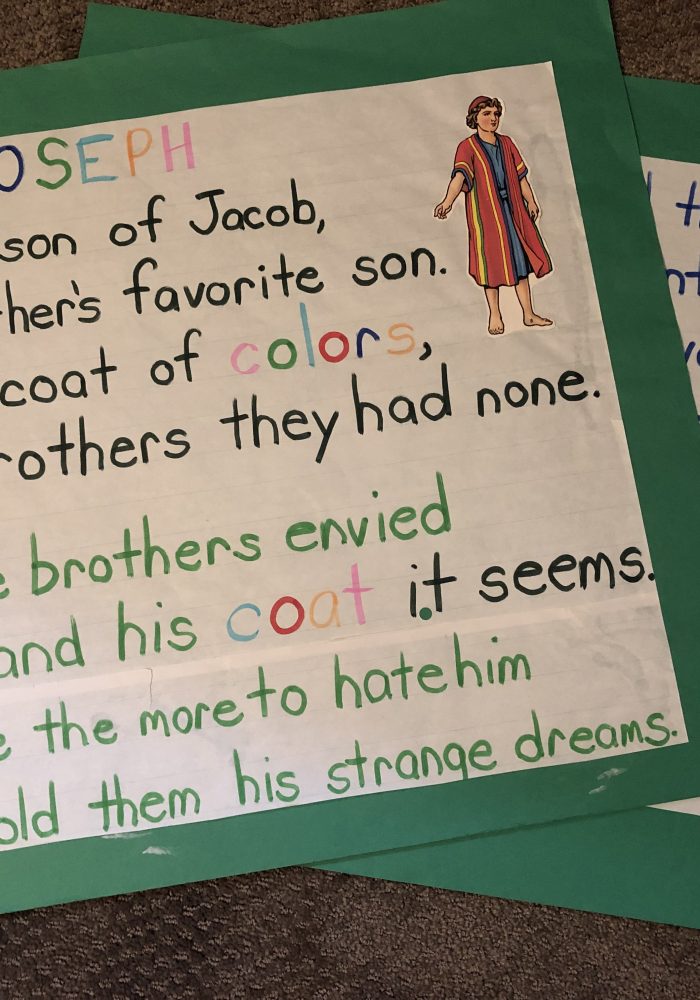 OSEPH
son of Jacob,
ther's favorite son.
coat of colors,
rothers they had none.
e brothers envied
and his coat it seems.
e the more to hate him
old them his strange dreams.